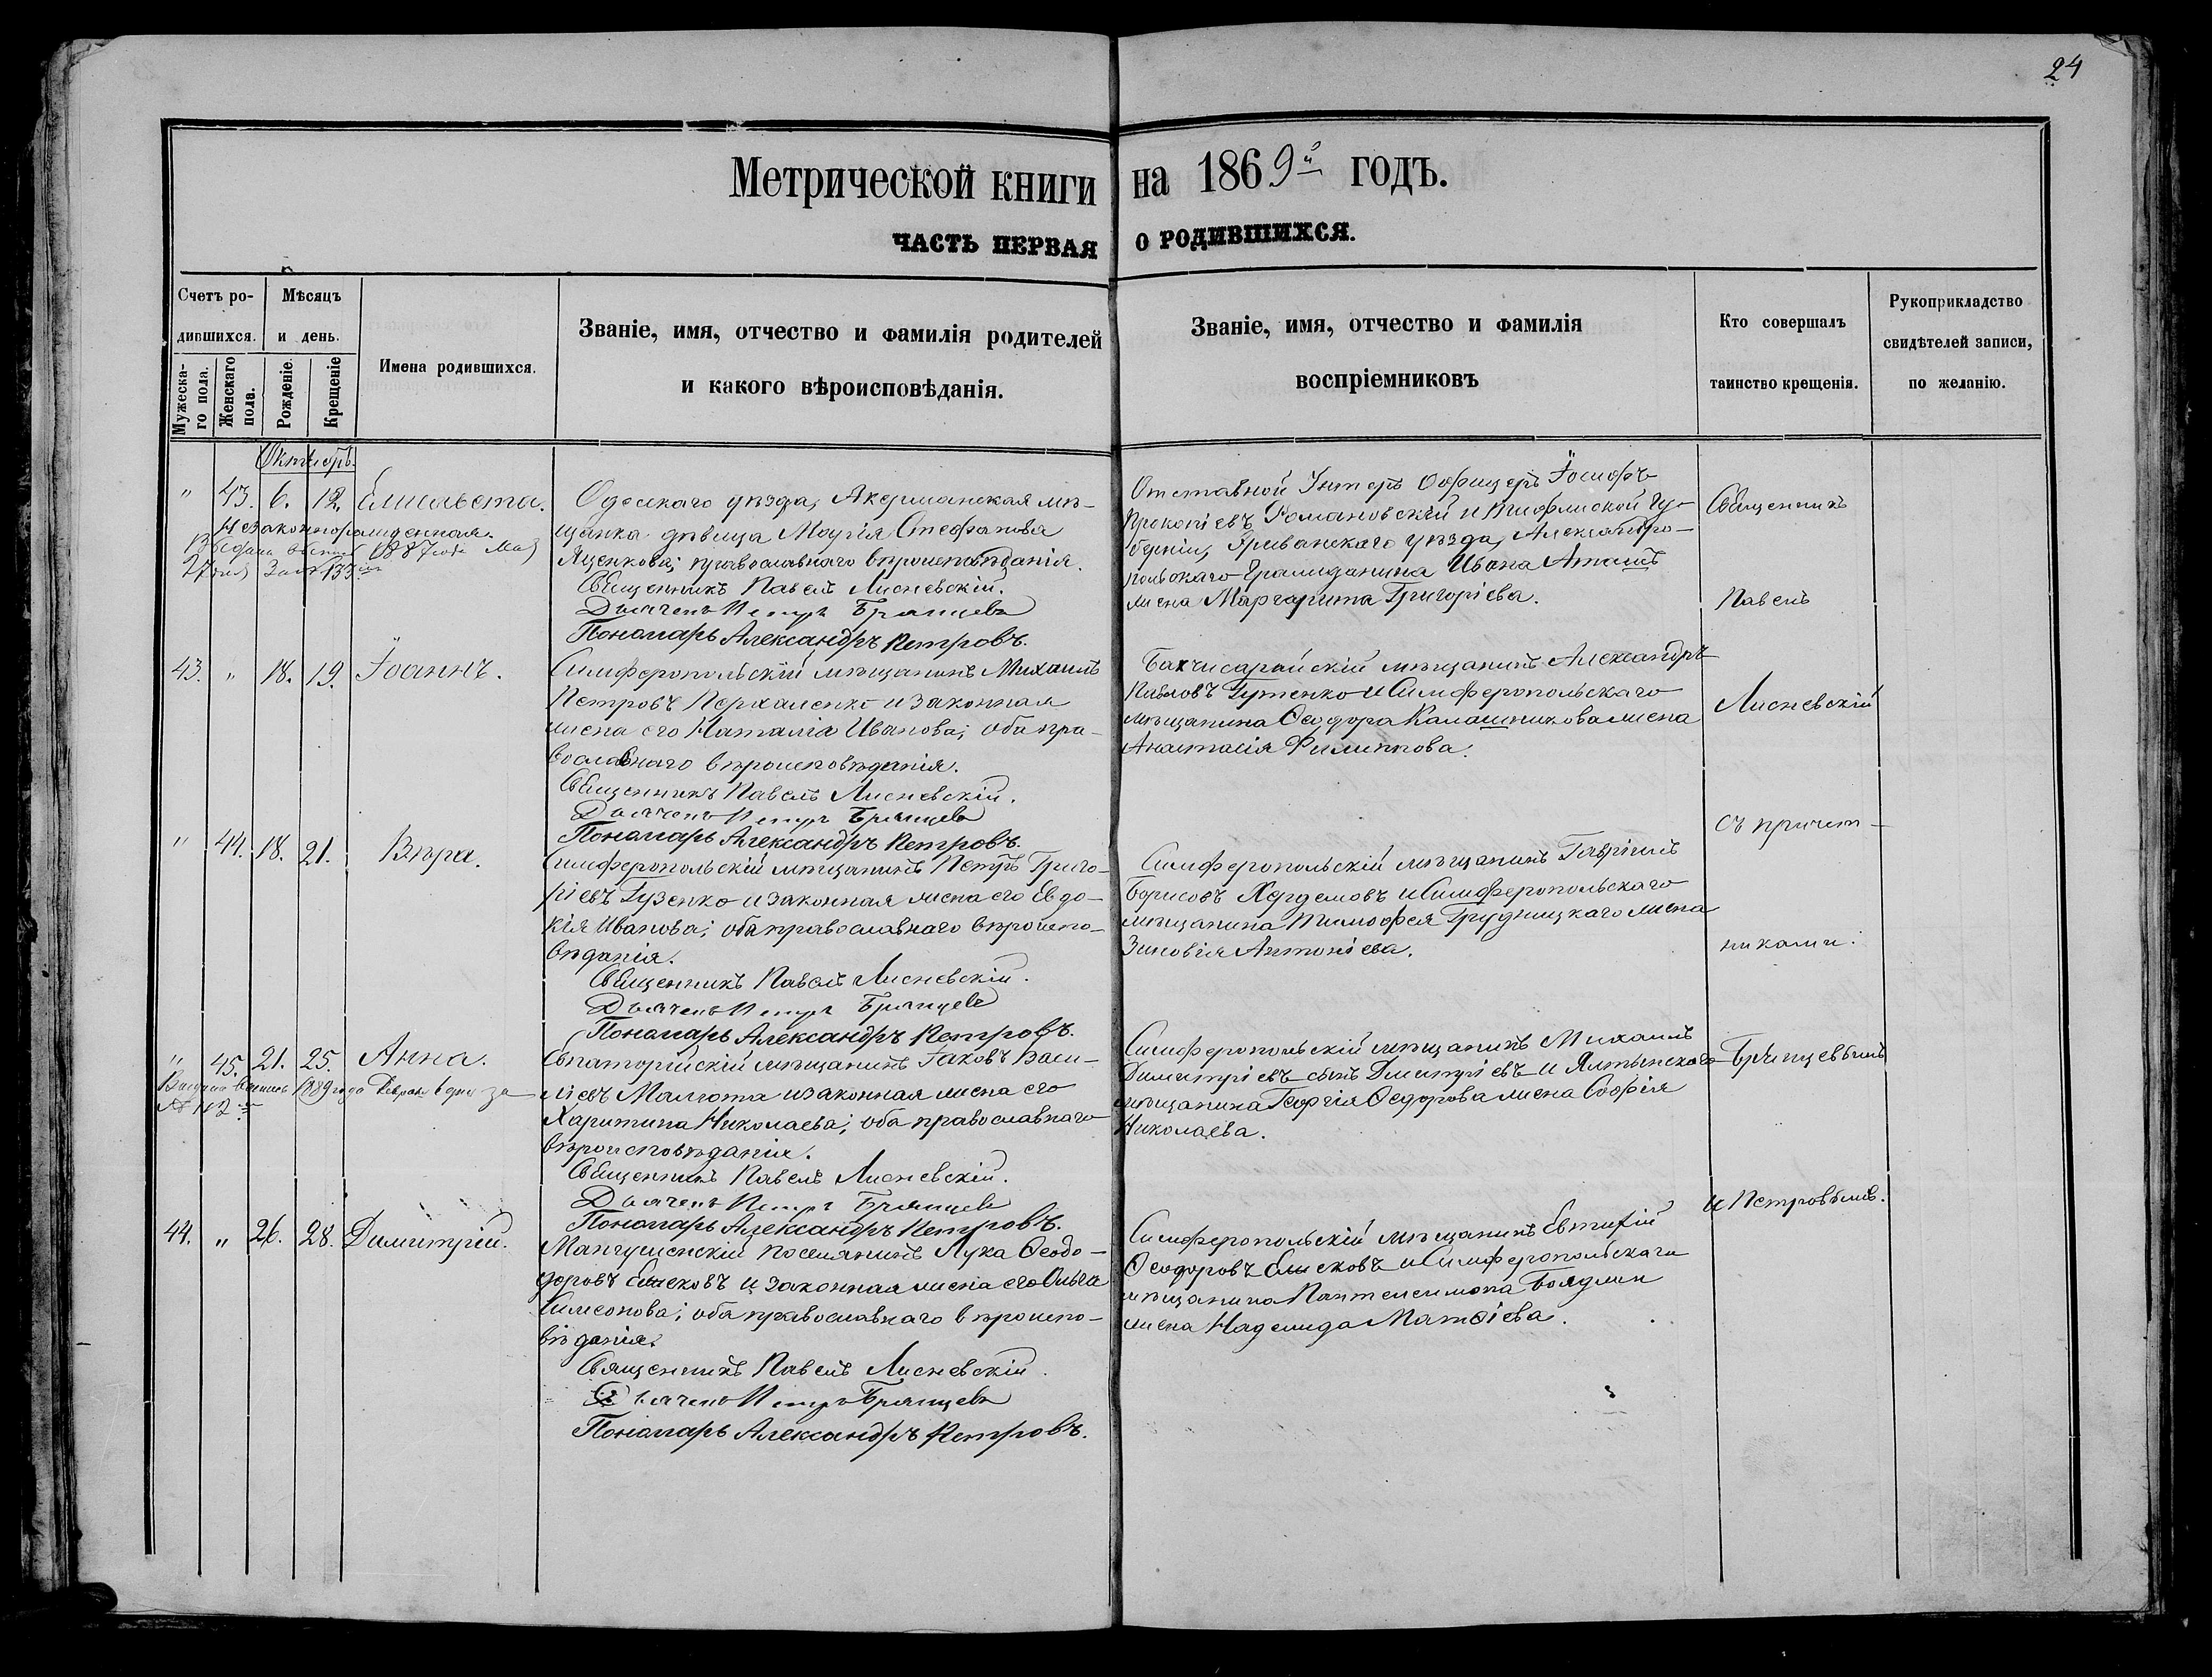 24
Метрической книги на 1869й годъ.
ЧАСТЬ ПЕРВАЯ О РОДИВШИХСЯ.
Счетъ ро-
дившихся.
Мужеска-
го пола.
Женскаго
пола.
Мѣсяцъ
и день.
Рожденіе.
Крещеніе
Имена родившихся.
Званіе, имя, отчество и фамилія родителей
и какого вѣроисповѣданія.
Званіе, имя, отчество и фамилія
воспріемниковъ
Кто совершалъ
таинство крещенія.
Рукоприкладство
свидѣтелей записи,
по желанію.
Октябрь.
" 43. 6. 12. Елисавета.
Незаконнорожденная.
Выдана выпись 1887 года Мая
27 дня за № 133
Одесскаго уѣзда, Акерманская мѣ-
щанка дѣвица Марія Стефанова
Яценкова; православнаго вѣроисповѣданія.
Священникъ Павелъ Лисневскій.
Дьячекъ Петръ Брянцевъ
Пономарь Александръ Петровъ.
Отставной Унтеръ Офицеръ Іосифъ
Прокопіевъ Романовскій и Тифлиской Гу-
берніи, Ериванскаго уѣзда, Александро-
польскаго Гражданина Ивана
жена Маргарита Григоріева.
Священникъ
Павелъ
43. " 18. 19. Іоаннъ.
Симферопольскій мѣщанинъ Михаилъ
Петровъ Пержаленко и законная
жена его Наталія Иванова; оба пра-
вославнаго вѣроисповѣданія.
Священникъ Павелъ Лисневскій.
Дьячекъ Петръ Брянцевъ
Пономарь Александръ Петровъ.
Бахчисарайскій мѣщанинъ Александръ
Павловъ Гутенко и Симферопольскаго
мѣщанина Ѳеодора Калашникова жена
Анастасія Филиппова.
Лисневскій
" 44. 18. 21. Вѣра.
Симферопольскій мѣщанинъ Петръ Григо-
ріевъ Гузенко и законная жена его Евдо-
кія Иванова; оба православнаго вѣроиспо-
вѣданія.
Священникъ Павелъ Лисневскій.
Дьячекъ Петръ Брянцевъ
Пономарь Александръ Петровъ.
Симферопольскій мѣщанинъ Гавріилъ
Борисовъ и Симферопольскаго
мѣщанина Тимофея Грудницкаго жена
Зиновія Антоніева.
съ причет-
никами:
" 45. 21. 25. Анна.
Выдана выпись 1889 года Февраля дня за
№ 112
Евпаторійскій мѣщанинъ Іаковъ Васи-
ліевъ Малюта и законная жена его
Харитина Николаева; оба православнаго
вѣроисповѣданія.
Священникъ Павелъ Лисневскій.
Дьячекъ Петръ Брянцевъ
Пономарь Александръ Петровъ.
Симферопольскій мѣщанинъ Михаилъ
Димитріевъ сынъ Дмитріевъ и Ялтинскаго
мѣщанина Георгія Ѳедорова жена Софія
Николаева.
Брянцевымъ
44. " 26. 28. Димитрій.
Мангушенскій поселянинъ Лука Ѳеодо-
ровъ Елисковъ и законная жена его Ольга
Симеонова; оба православнаго вѣроиспо-
вѣданія.
Священникъ Павелъ Лисневскій.
Дьячекъ Петръ Брянцевъ
Пономарь Александръ Петровъ.
Симферопольскій мѣщанинъ Евтихій
Ѳеодоровъ Елисковъ и Симферопольскаго
мѣщанина Пантелеимона
жена Надежда Матѳіева.
и Петровымъ.